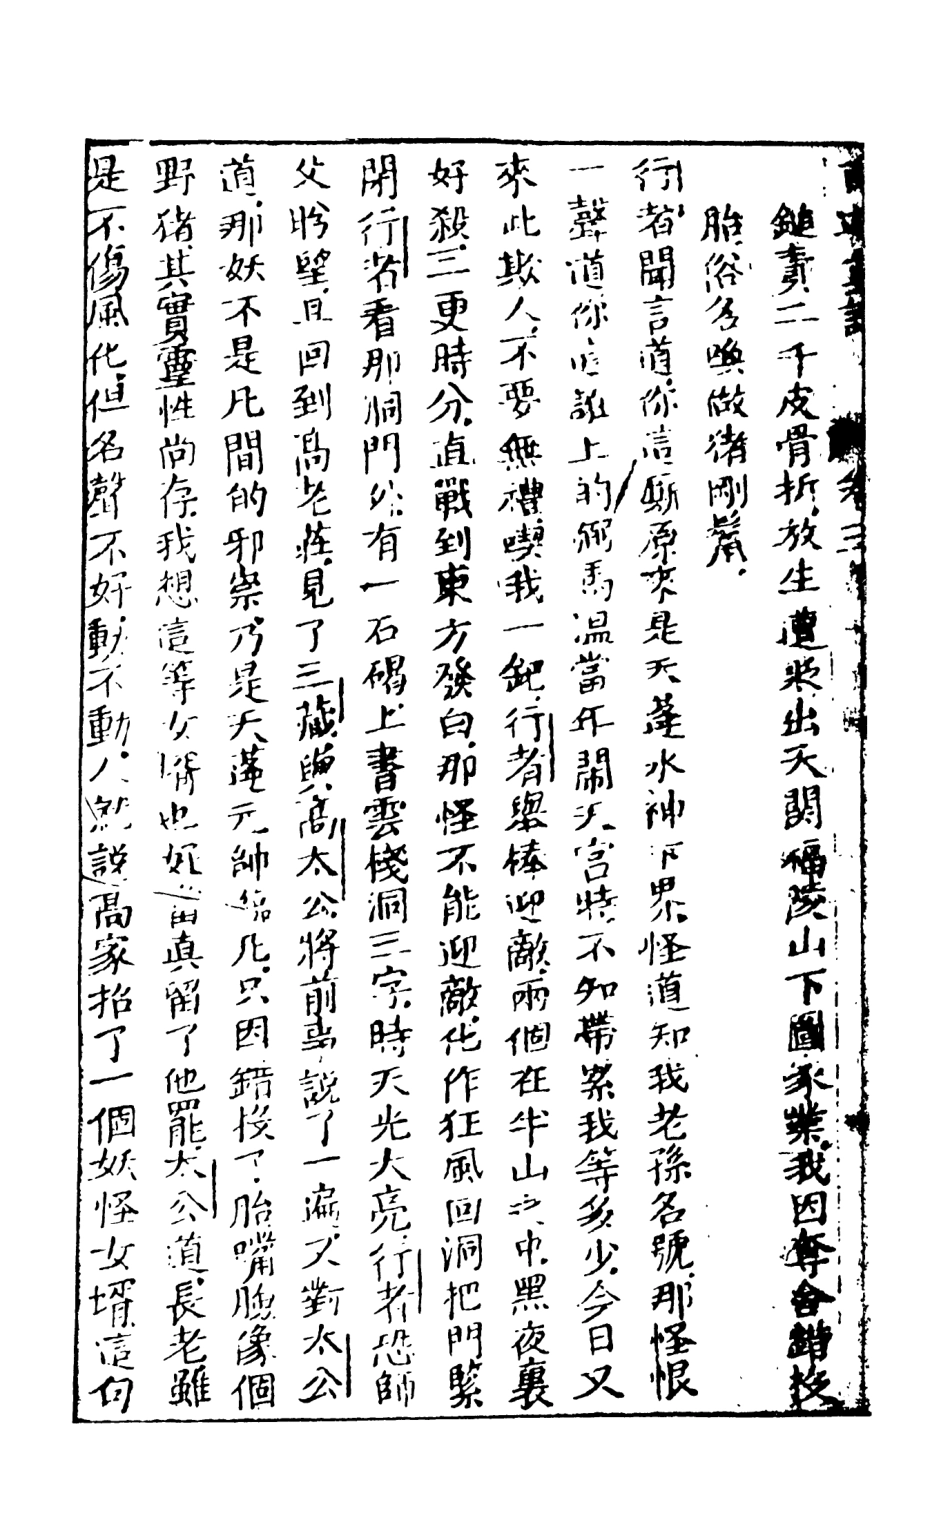 西遊真詮 卷三
鎚責二千皮骨折放生遭貶出天関福陵山下圖家業我因奪舍錯投
胎俗名喚做猪剛鬣
行者聞言道你這厮原來是天蓬水神下界怪道知我老孫名號那怪恨
一聲道你這誑上的弼馬温當年閙天宫時不知帶累我等多少今日又
來此欺人不要無禮喫我一鈀行者舉棒迎敵兩個在半山之中黑夜裏
好殺二更時分直戰到東方發白那怪不能迎敵化作狂風回洞把門緊
閉行者看那洞門外有一石碣上書雲棧洞三字時天光大亮行者恐師
父盻望且回到髙老莊見了三藏與髙太公將前事說了一遍又對太公
道那妖不是凡間的邪祟乃是天蓬元帥臨凡只因錯投了胎嘴臉像個
野猪其實靈性尚存我想這等女壻也好留真留了他罷太公道長老雖
是不傷風化但名聲不好動不動人就說髙家招了一個妖怪女壻這句